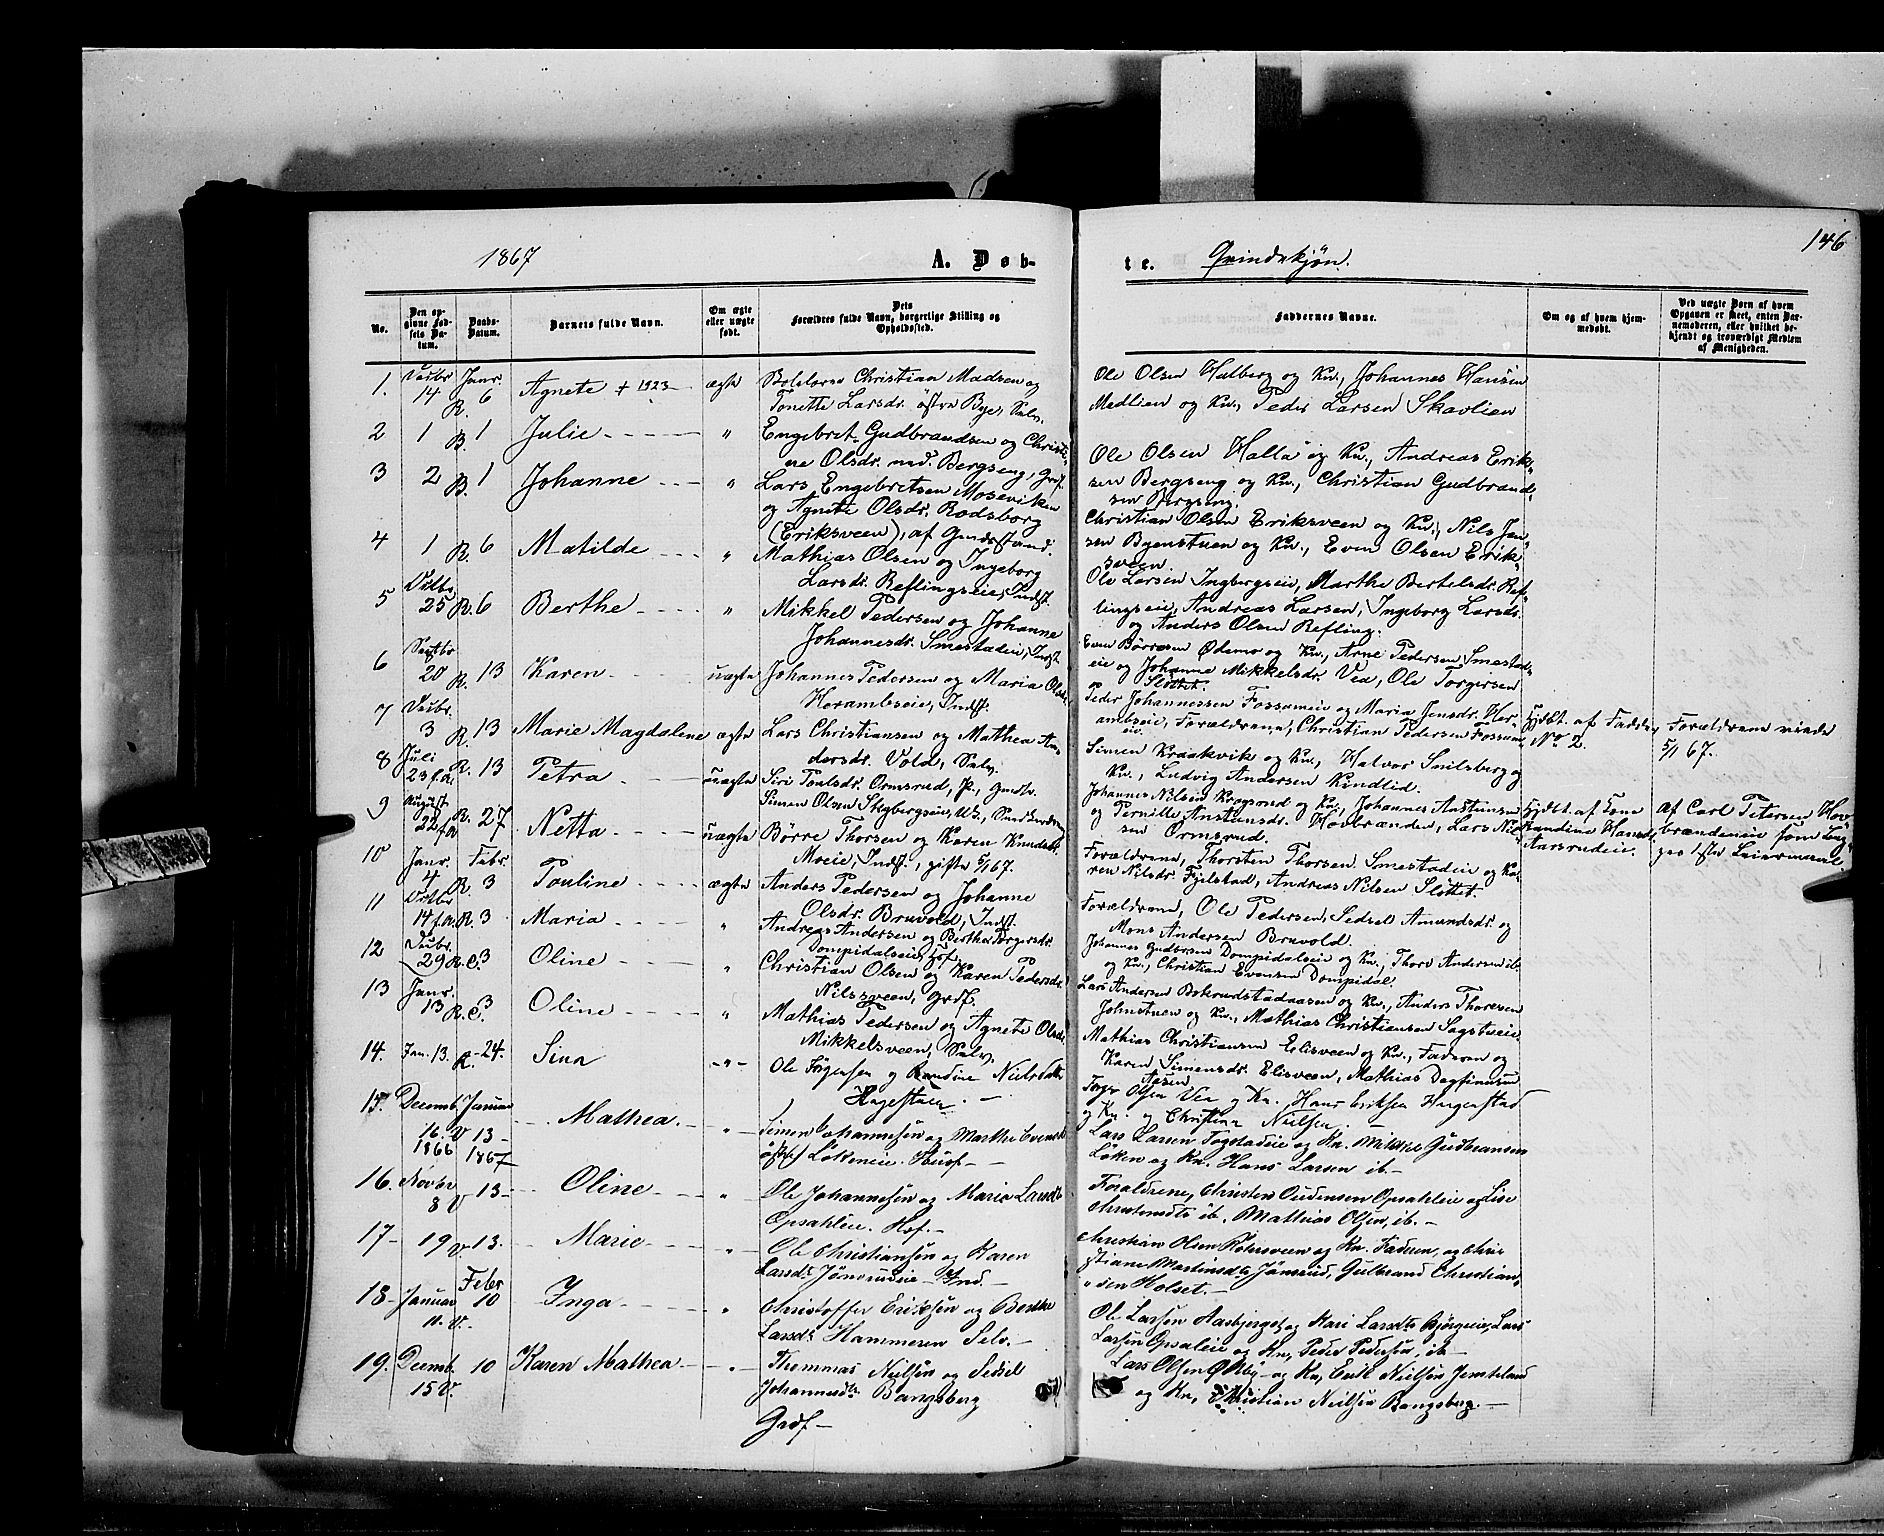 1867
A. Døb-
te.
Qvindekjøn.
146
No.
Den opgivne Fødsels Datum.
Daabs-Datum.
Barnets fulde Navn.
Om ægte eller uægte født.
Dets Forældres fulde Navn, borgerlige Stilling og Opholdssted.
Faddernes Navne.
Om og af hvem hjemmedøbt.
Ved uægte Børn af hvem Opgaven er skeet, enten Barnemoderen, eller hvilket bekjendt og troværdigt Medlem af Menigheden.
1. 14 Janr. R. 6 Agnete + 1923 ægte Christian Madsen og
Tonette Larsdr. Bye, Selv.
Ole Olsen Halberg og Kn., Johannes Hansen
Medlien og Kn., Peder Larsen Skavlien
2 1 B. 1 Julie " Engebret Gudbrandsen og Christi-
ne Olsdr. Bergseng, Grf.
Ole Olsen Halla og Kn., Andreas Erik-
sen Bergseng og Kn., Christian Gudbrand-
sen Bergseng.
3 2 B. 1 Johanne " Lars Engebretsen Moseviken
og Agnete Olsdr. Rodsborg
(Eriksveen), af
Christian Olsen Eriksveen og Kn., Nils Jen-
sen Byenstuen og Kn., Even Olsen Erik-
sveen.
4 1 R. 6 Matilde " Mathias Olsen og Ingeborg
Larsdr. Reflingseie, Indst.
Ole Larsen Ingbergseie, Marthe Bertelsdr. Ref-
lingseie, Andreas Larsen, Ingeborg Larsdr.
og Anders Olsen Refling.
5 25 R. 6 Berthe " Mikkel Pedersen og Johanne
Johannesdr. Smestadeie, Indst.
Even Børresen Ødemo og Kn., Arne Pedersen Smestad-
eie og Johanne Mikkelsdr. Ved, Ole Torgersen
Slottet.
6 Septbr. 20 R. 13 Karen uægte Johannes Pedersen og Maria Olsdr.
Horambseie, Indst.
Peder Johannessen Fossumeie og Maria Jensdr. Hor-
ambseie, Forældrene, Christian Pedersen Fossum-
eie.
Hjdbt. af Fadder
No 2.
Forældrene viede
5/1 67.
7 3 R. 13 Marie Magdalene ægte Lars Christiansen og Mathea An-
dersdr. Vold, Selv.
Simen Kraakvik og Kn., Halvor Snilsberg og
Kn., Ludvig Andersen Kindlid.
8 Juli 23 f.A. R. 13 Petra uægte Siri Poulsdr. Ormsrud, P.,
Simen Olsen Skybergseie, U.G.,
Johannes Nilsen Kragsrud og Kn., Johannes Austinsen
og Pernille Austinsdr. Hovbrænden, Lars Nil-
sen Ormsrud.
Hjdbt. af Kone
Randine Hansdr.
Aarsrudeie.
af Carl Petersen Hov-
brændeneie som
1ste Leiermaal.
9 August 22 f.A. R. 27 Netta uægte Børre Thorsen og Karen Knudsdr.
Moeie, Indst., gifte 5/1 67.
Forældrene, Thorsten Thorsen Smestadeie og Ka-
ren Nilsdr. Fjelstad, Andreas Nilsen Slottet.
10 Janr. 4 Febr. R. 3 Pouline ægte Anders Pedersen og Johanne
Olsdr. Bruvold, Indst.
Forældrene, Ole Pedersen, Sedsel Amundsdr. og
Mons Andersen Bruvold.
11 14 f.A. R. 3 Maria " Andreas Andersen og Berthe Torgersdr.
Dompidalseie,
Johannes Gudbrsen Dompidalseie og Kn., Thore Andersen ib.
og Kn., Christian Evensen Dompidal.
12 29 R. C. 3 Oline " Christian Olsen og Karen Pedersdr.
Nilssveen, Grdf.
Lars Andersen Bskrudstadaasen og Kn., Anders Thoresen
Johnstuen og Kn., Mathias Christiansen Sagstueie.
13 Janr. 13 R. C. 3 Oline " Mathias Pedersen og Agnete Olsdr.
Mikkelsveen, Selv.
Mathias Christiansen Elisveen og Kn., Faderen og
Karen Simensdr. Elisveen, Mathias Dagfinnsen
Aasen
14. Jan. 13. R. 24. Sina " Ole Jørgensen og Randine Nielsdatter
Hagestuen.
Torger Olsen Vea og Kn. Hans Eriksen Hagenstad
og Kn. og Christine Nielsen.
15. Decemb. 16. V 1866 Januar 13 1867 Mathea. " Simen Johannesen og Marthe Evensdt.
Løkeneie. Husf
Lars Larsen Togstadeie og Kn. Mikkel Gudbransen
Løken og Kn. Hans Larsen ib.
16. Novbr 8 V 13 Oline " Ole Johannesen og Maria Larsdt.
Opsahleie. Hsf.
Forældrene, Christen Andersen Opsahleie og Lise
Christensdtr ib. Mathias Olsen, ib.
17 19 V 13. Marie " Ole Christiansen og Karen
Larsdt. Jønsrudeie Ind.
Christian Olsen Pedersveen og Kn. Faderen, og Chri-
stiane Martinsdtr Jønsrud, Gulbrand Christian-
sen Holset.
18 Januar 11. V. Febr 10 Inga " Christoffer Eriksen og Berthe
Larsdt. Hammeren Selv.
Ole Larsen Aasbjerget og Kari Larsdtr Bjørgeie, Lars
Larsen Opsaleie og Kn, Peder Pedersen, ib
19. Decemb. 15 V. 10 Karen Mathea " Thommas Nielsen og Sedsel
Johannesdtr Bangsberg
Grdf
Lars Olsen Økby og Kn, Erik Nielsen Jemtland
og Kn, Christian Nielsen Bangsberg.